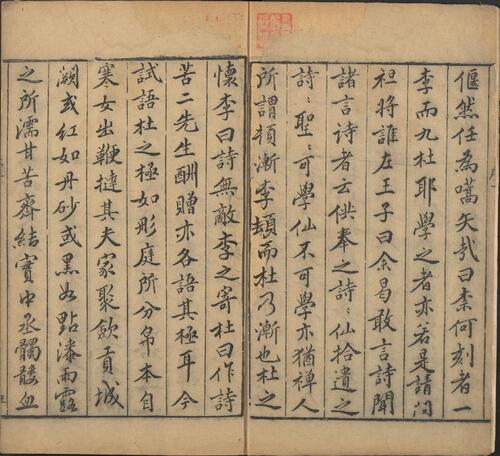 偃然任為嚆矢哉曰柰何刻者一
李而九杜耶學之者亦若是請問
袒將誰左王子曰余曷敢言詩聞
諸言诗者云供奉之詩:仙拾遺之
詩:聖:可學仙不可學亦猶禅人
所謂頓漸李頓而杜乃漸也杜之
懐李曰詩無敵李之寄杜曰作詩
苦二先生酬贈亦各語其極耳今
試語杜之極如彤庭所分帛本自
寒女出鞭撻其夫家聚歛貢城
闕或紅如丹砂或黒如點漆雨露
之所濡甘苦齊結實中丞髑髏血
序